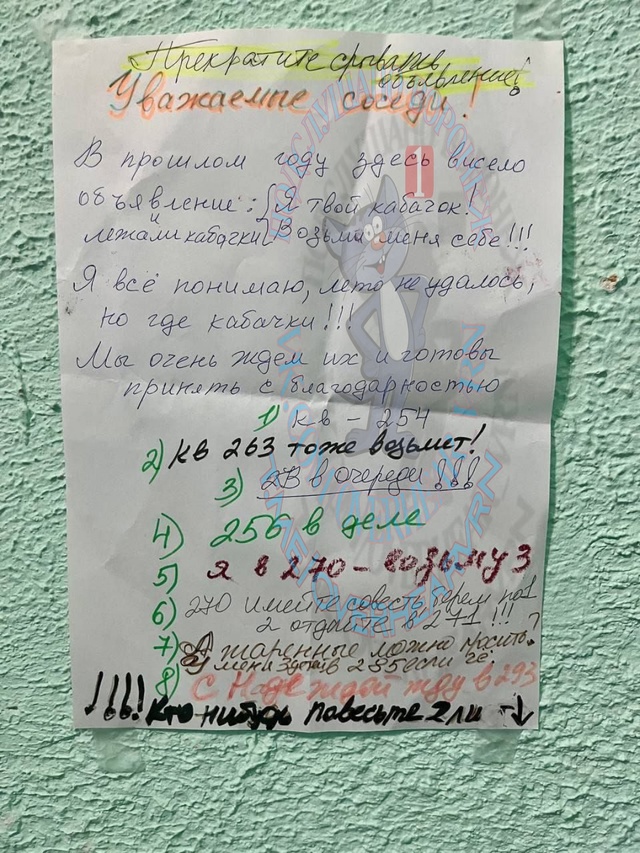 Прекратите срывать
объявление!
Уважаемые соседи!
В прошлом году здесь висело
объявление: Я твой кабачок!
и
лежали кабачки Возьми меня себе!!!
Я всё понимаю, лето не удалось,
но где кабачки!!!
Мы очень ждем их и готовы
принять с благодарностью
1) кв - 254
2) кв 263 тоже возьмет!
3) 2В в очереди!!!
4) 256 в деле
5) Я в 270 - возьму 3
6) 270 имейте совесть берем по 1
2 отдайте в 271!!!
7) А жаренные можно просить?
У меня зуба в 255 если че.
8) С Надеждой жду в 293
!!!! Кто нибудь повесьте 2 ли →